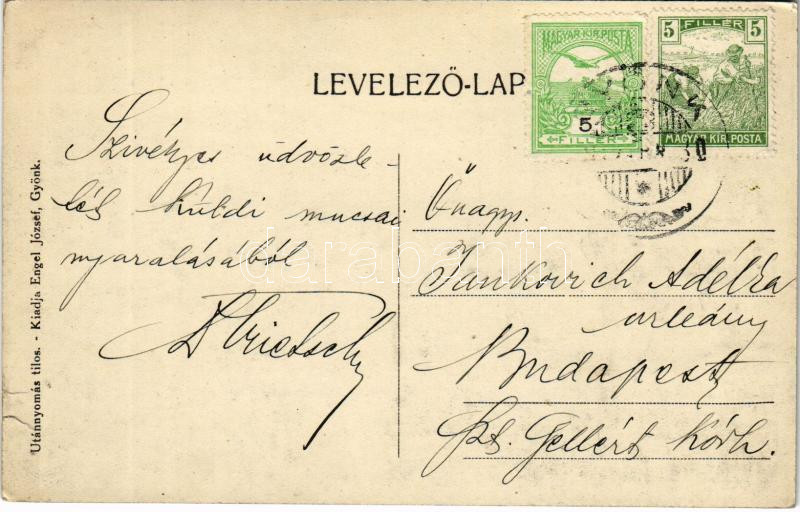 LEVELEZŐ-LAP
MAGYAR KIR. POSTA
5
FILLÉR
FILLÉR
5 5
MAGYAR KIR. POSTA
Szivélyes üdvözle-
tét küldi mucsai
nyaralásából
Őnagys.
Jankovich Adélka
urleány
Budapest
Szt. Gellért Kórh.
Utánnyomás tilos. - Kiadja Engel József, Gyönk.
darabanth